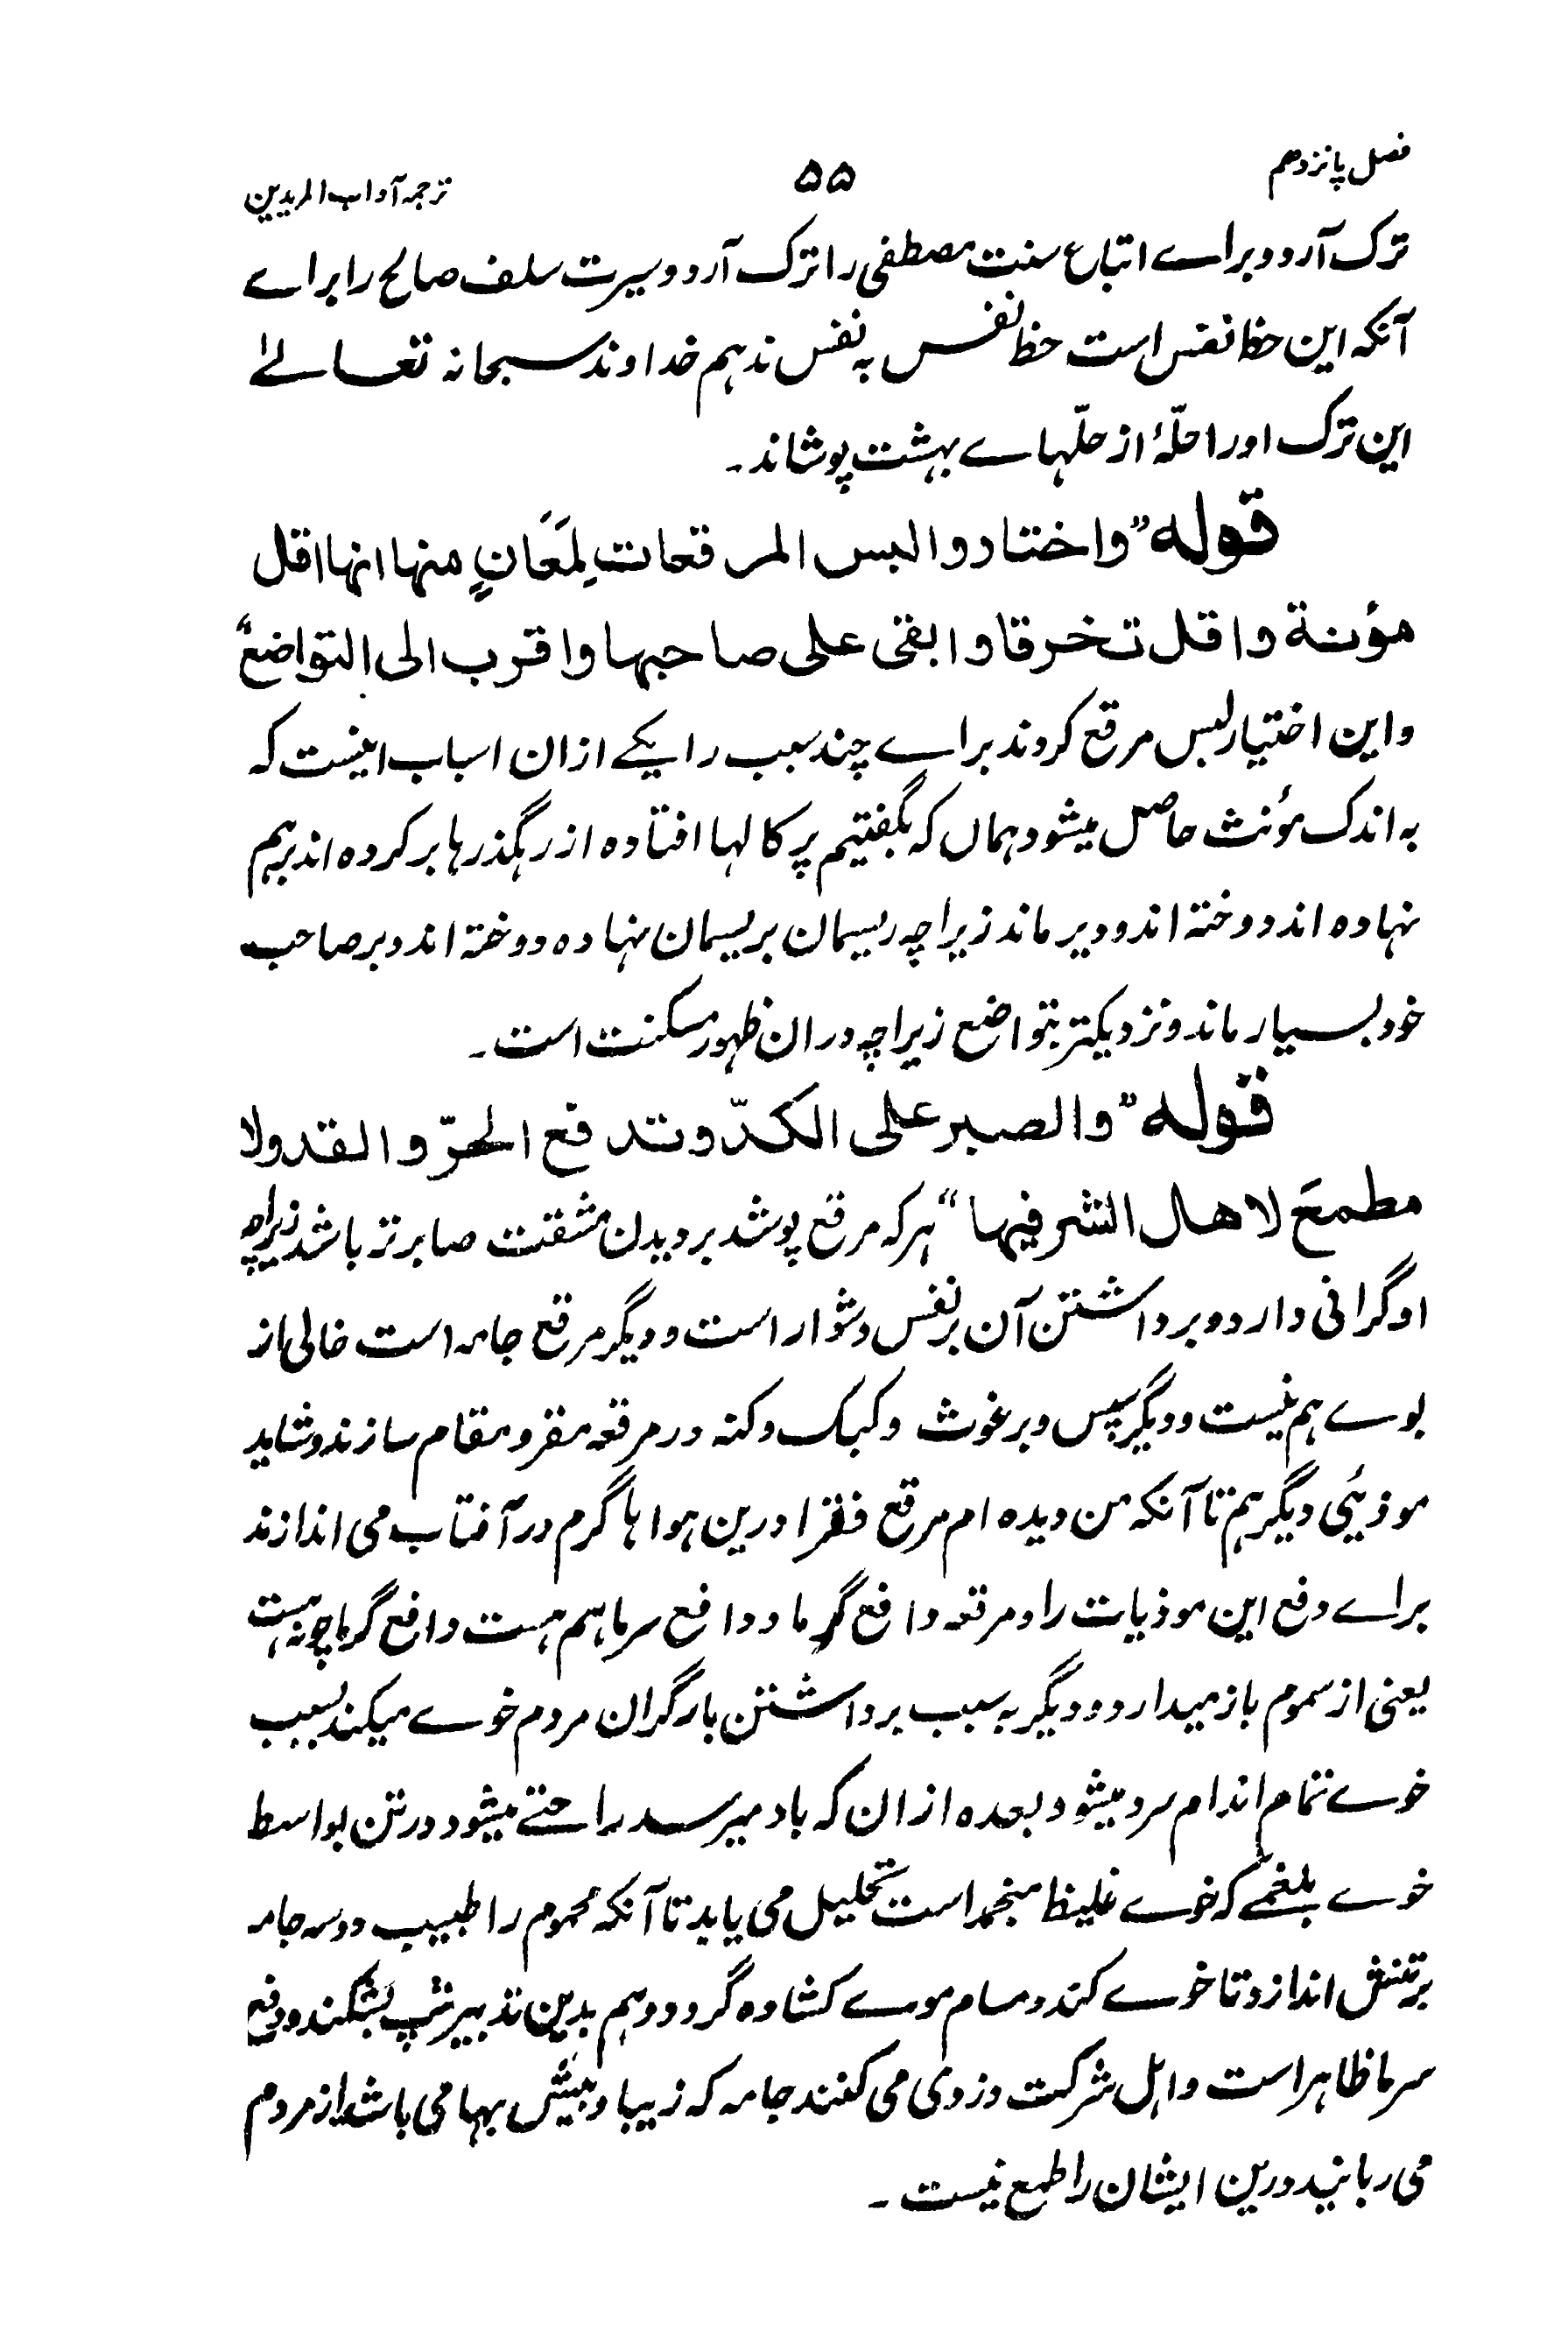 فصل پانزدهم
۵۵
ترجمہ آداب المریدین
ترک آرد و برای اتباع سنت مصطفی را ترک آرد و سیرت سلف صالح را براے
آنکہ این حظ نفس است حظ نفس بہ نفس ندہم خداوند سبحانہ تعالےٰ
این ترک او را حلّۂ از حلّہاے بہشت پوشاند۔
قوله ”واختاروا لبس المرقعات لِمَعَانٍ منها انها اقل
مؤنة واقل تخرقا وابقی علی صاحبها واقرب الی التواضع“
و این اختیار لبس مرقع کردند براے چند سبب را یکے ازان اسباب اینست کہ
بہ اندک مؤنث حاصل میشود ہماں کہ بگفتیم پرکالہا افتادہ از رہگذرہا بر کردہ اند برہم
نہادہ اند دوختہ اند و دیر ماند زیراچہ ریسمان بریسمان نہادہ دوختہ اند و بر صاحب
خود بسیار ماند و نزدیکتر بتواضع زیراچہ دران ظہور مسکنت است۔
قوله ”والصبر علی الکدّ وتدفع الحرّ والقد ولا
مطمعَ لاهل الشر فیها“ ہرکہ مرقع پوشد بر دیدن مشقت صابر تر باشد زیراچہ
او گرانی دارد و برداشتن آن بر نفس دشوار است و دیگر مرقع جامہ است خالی از
بوے ہم نیست و دیگر سپس و برغوث و کبک و کنہ در مرقعہ مقر و مقام سازند و شاید
موذیئی دیگر ہم تا آنکہ من دیدہ ام مرقع فقرا درین ہوا ہا گرم در آفتاب می اندازند
براے دفع این موذیات را و مرقعہ دافع گرما و دافع سرما ہم ہست دافع گرما چونہ ہست
یعنی از سموم باز میدارد و دیگر بہ سبب برداشتن بار گران مردم خوے میکند بسبب
خوے تمام اندام سرد میشود بعدہ ازان کہ باد میرسد راحتے میشود در تن بواسط
خوے بلغمے کہ خوے غلیظ منجمد است تحلیل می یابد تا آنکہ محموم را طبیب دو سہ جامہ
بر تنش اندازد تا خوے کند و مسام موے کشادہ گردد و ہم بدین تدبیر تپ بشکند و دفع
سرما ظاہر است و اہل شرکت دزدی می کنند جامہ کہ زیبا و بیش بہا می باشد از مردم
می ربایند درین ایشان را طمع نیست۔